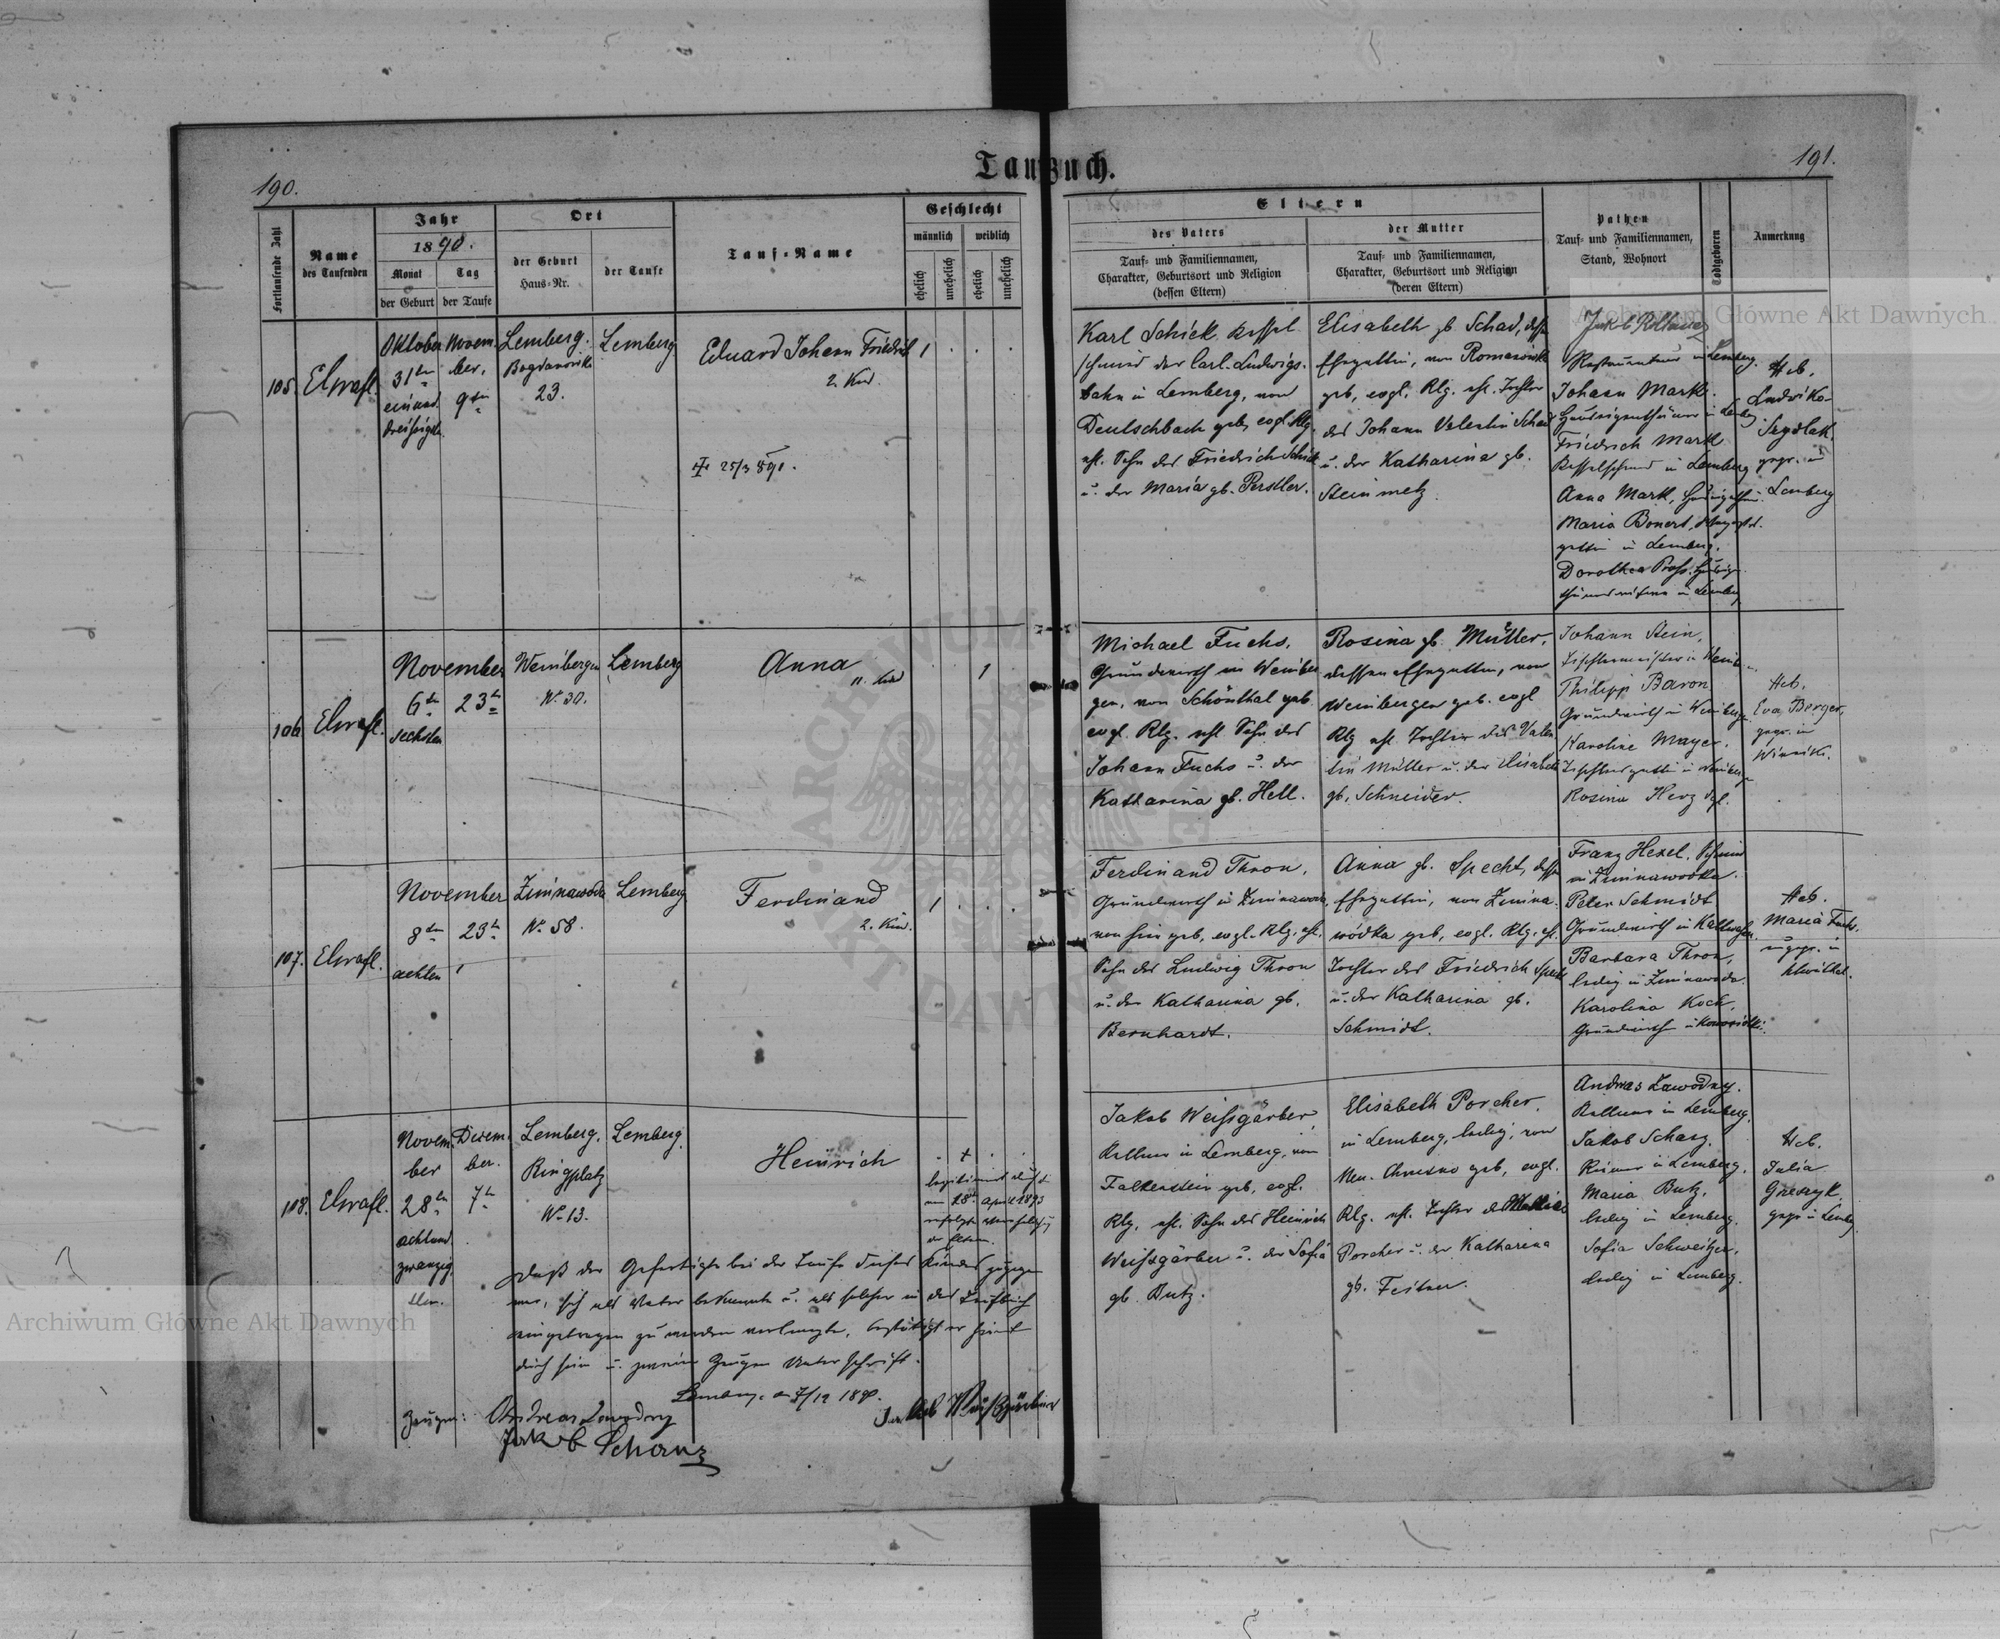 Taufbuch.
190.
191.
Fortlaufende Zahl
Name
des Taufenden
Jahr
1890.
Monat
Tag
der Geburt
der Taufe
Ort
der Geburt
Haus-Nr.
der Taufe
Tauf-Name
Geschlecht
männlich
weiblich
ehelich
unehelich
ehelich
unehelich
Eltern
des Vaters
Tauf- und Familiennamen,
Charakter, Geburtsort und Religion
(dessen Eltern)
der Mutter
Tauf- und Familiennamen,
Charakter, Geburtsort und Religion
(deren Eltern)
Pathen
Tauf- und Familiennamen,
Stand, Wohnort
Todtgeboren
Anmerkung
105.
Oktober
31ten
einund
dreißigsten
Novem
ber,
9ten
Lemberg.
23.
Lemberg
Eduard Johann Friedrich
2. Kind.
25/3 891.
1
Karl Schick, Kessel
schmied der Carl-Ludwigs-
bahn in Lemberg, von
Deutschbach geb, evgl. Rlg.
ehl. Sohn des Friedrich Schick
u. der Maria gb. Perstler.
Elisabeth gb. Schad, dessen
Ehegattin, von
geb, evgl. Rlg. ehl. Tochter
des Johann Valentin Schad
u. der Katharina gb.
Steinmetz.
Jakob
Restaurateur in Lemberg.
Johann Markl.
Hauseigenthümer in
Friedrich Markl
Kesselschmied in Lemberg
Anna Markl,
Maria Bonert,
gattin in Lemberg.
Dorothea
in Lemberg
Heb.
Ludwika
gepr. in
Lemberg
106
November
6ten
sechsten
23ten
Weinbergen
Nº 30.
Lemberg
Anna
11. Kind
1
Michael Fuchs,
Grundwirth in Weinber
gen, von Schönthal geb
evgl. Rlg. ehl. Sohn des
Johann Fuchs u. der
Katharina gb. Hell.
Rosina gb. Müller,
dessen Ehegattin, von
Weinbergen geb. evgl
Rlg ehl. Tochter des Valen
tin Müller u. der Elisabeth
gb. Schneider.
Johann Stein,
Tischlermeister in
Philipp Baron
Grundwirth in
Karoline Mayer.
Tischlersgattin in
Rosina Herz dgl.
Heb.
Eva Berger,
gepr. in
Winniki.
107.
November
8ten
achten
23ten
Zimnawoda
Nº 58.
Lemberg
Ferdinand
2. Kind.
1
Ferdinand Thron,
Grundwirth in Zimnawoda,
von hier geb, evgl. Rlg. ehl.
Sohn des Ludwig Thron
u. der Katharina gb.
Bernhardt.
Anna gb. Specht, dessen
Ehegattin, von Zimna-
wodka geb, evgl. Rlg. ehl.
Tochter des Friedrich Specht
u. der Katharina gb.
Schmidt.
Franz Hexel, Schmied
in Zimnawodka.
Peter Schmidt
Grundwirth in
Barbara Thron,
ledig in Zimnawoda
Karolina Koch,
Grundwirth in
Heb.
Maria Fuchs.
ungepr. in
108.
Novem
ber
28ten
achtund
zwanzig
sten.
Decem
ber.
7ten
Lemberg.
Ringplatz
Nº 13.
Lemberg.
Heinrich
+
legitimirt durch
am 18ten April 1893
erfolgte Verehelichung
der Eltern.
Jakob Weißgärber,
Kellner in Lemberg, von
Falkenstein geb, evgl.
Rlg. ehl. Sohn des Heinrich
Weißgärber u. der Sofia
gb. Butz.
Elisabeth Porcher,
in Lemberg, ledig, von
Neu-Chrusno geb, evgl.
Rlg. ehl. Tochter des
Porcher u. der Katharina
gb.
Andreas Zawodny.
Kellner in Lemberg,
Jakob Schanz,
in Lemberg,
Maria Butz,
ledig in Lemberg.
Sofia Schweitzer,
ledig in Lemberg.
Heb.
Julia
gepr. in Lemberg
Daß der Gefertigte bei der Taufe dieses Kindes zugegen
war, sich als Vater bekannte u. als solcher in das Taufbuch
eingetragen zu werden verlangte, bestätigt er hiemit
durch seine u. zweier Zeugen Unterschrift.
Lemberg, am 7/12 1890.
Zeugen: Andreas Zawodny
Jakob Weißgärber
Jakob Schanz
Archiwum Główne Akt Dawnych
Archiwum Główne Akt Dawnych